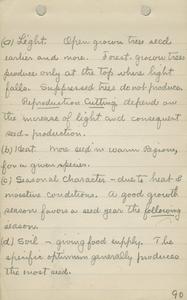 (a) Light. Open grown trees seed
earlier and more. Forest-grown trees
produce only at the top where light
falls. Suppressed trees do not produce.
Reproduction Cutting depend on
the increase of light and consequent
seed-production.
(b) Heat. More seed in warm regions,
for a given species.
(c) Seasonal Character - due to heat &
moisture conditions. A good growth
season favors a seed year the following
season.
(d) Soil - giving food supply. The
specific optimum generally produces
the most seed.
90